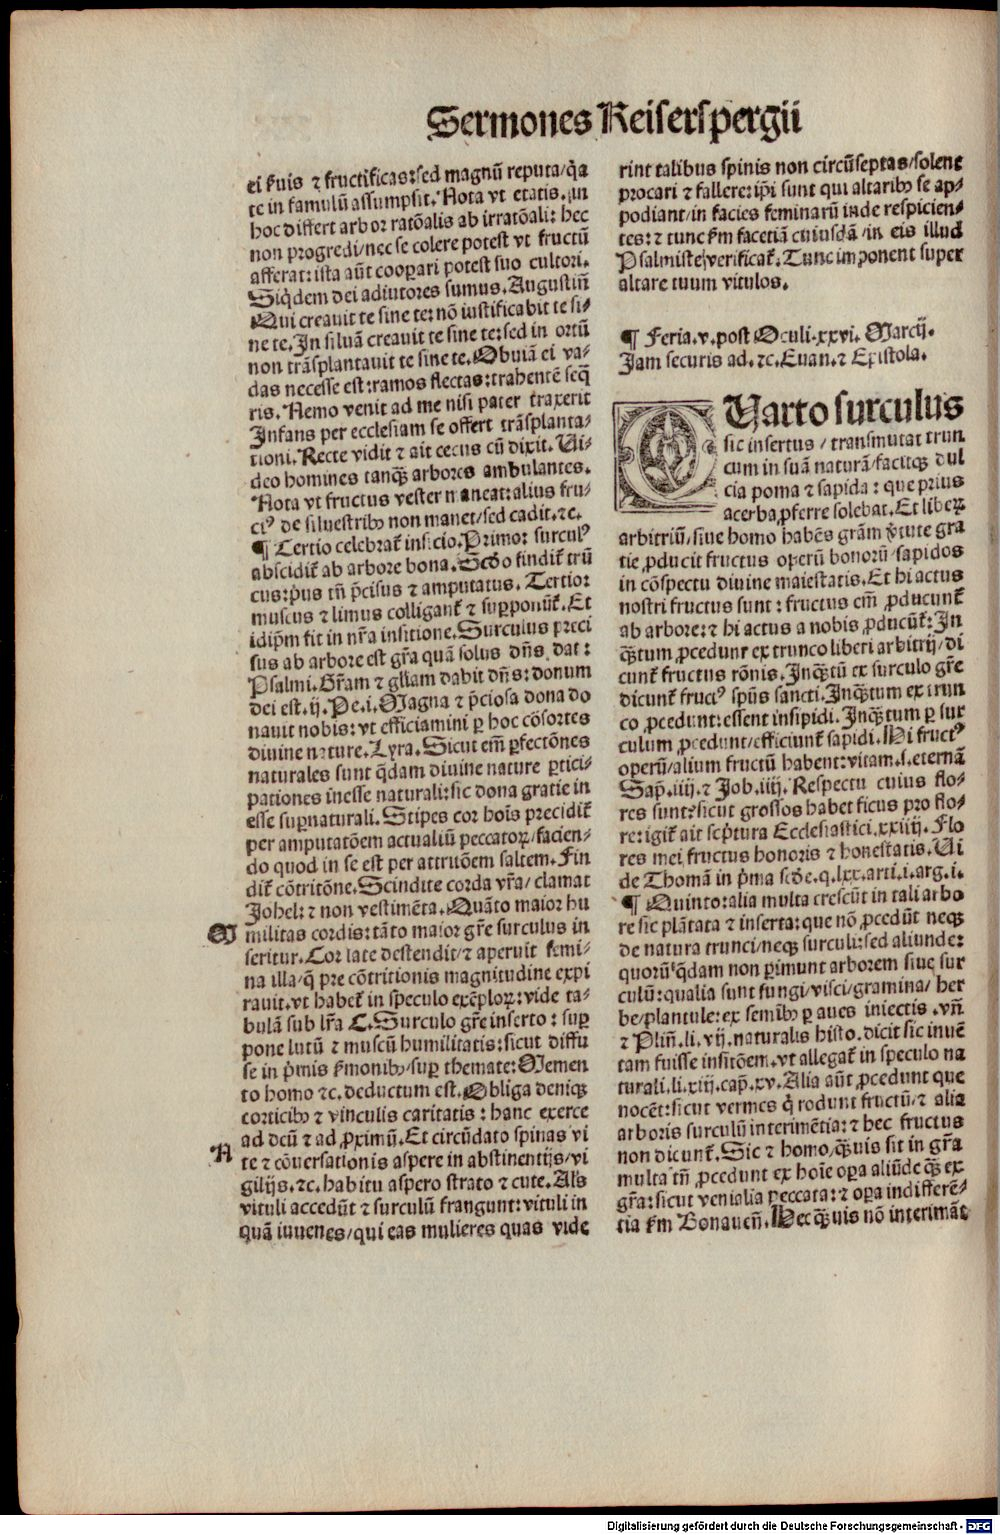 Sermones Keiserspergii
ei ẜuis ⁊ fructificas: sed magnū reputa/ q̄a
te in famulū assumpsit. Nota vt etatis. in
hoc differt arbor ratōalis ab irratōali: hec
non progredi/ nec se colere potest vt fructū
afferat: ista aūt coop̄ari potest suo cultori.
Siq̄dem dei adiutores sumus. Augustin̄
Qui creauit te sine te: nō iustificabit te si⸗
ne te. In siluā creauit te sine te: sed in ortū
non trāsplantauit te sine te. Obuiā ei va⸗
das necesse est: ramos flectas: trahentē seq̄
ris. Nemo venit ad me nisi pater traxerit
Infans per ecclesiam se offert trāsplanta⸗
tioni. Recte vidit ⁊ ait cecus cū dixit. Ui⸗
deo homines tanqꝫ arbores ambulantes.
Nota vt fructus vester maneat: alius fru⸗
ctꝰ de siluestribꝫ non manet/ sed cadit. ⁊c.
¶ Tertio celebrat̄ insicio. Primo: surculꝰ
abscidit̄ ab arbore bona. Scd̄o findit̄ trū
cus: p̄us tn̄ p̄cisus ⁊ amputatus. Tertio:
muscus ⁊ limus colligant̄ ⁊ supponūt̄. Et
idip̄m fit in nr̄a insitione. Surculus preci
sus ab arbore est gr̄a quā solus dn̄s dat:
Psalmi. Gr̄am ⁊ gl̄iam dabit dn̄s: donum
dei est. ij. Pe. i. Magna ⁊ p̄ciosa dona do
nauit nobis: vt efficiamini ꝑ hoc cōsortes
diuine nature. Lyra. Sicut em̄ ꝑfectōnes
naturales sunt q̄dam diuine nature ꝑtici⸗
pationes inesse naturali: sic dona gratie in
esse suꝑnaturali. Stipes cor hoīs precidit̄
per amputatōem actualiū peccatoꝝ/ facien⸗
do quod in se est per attritiōem saltem. Fin
dit̄ cōtritōne. Scindite corda vr̄a/ clamat
Johel: ⁊ non vestimēta. Quāto maior hu
M militas cordis: tāto maior gr̄e surculus in
seritur. Cor late destendit/ ⁊ aperuit femi⸗
na illa/ q̄ pre cōtritionis magnitudine expi
rauit. vt habet̄ in speculo exēploꝝ: vide ta⸗
bulā sub lr̄a C. Surculo gr̄e inserto: suꝑ
pone lutū ⁊ muscū humilitatis: sicut diffu
se in p̄mis ẜmonibꝫ/ suꝑ themate: Memen
to homo ⁊c. deductum est. Obliga deniqꝫ
corticibꝫ ⁊ vinculis caritatis: hanc exerce
ad deū ⁊ ad ꝓximū. Et circūdato spinas vi
N te ⁊ cōuersationis aspere in abstinentijs/ vi
gilijs. ⁊c. habitu aspero strato ⁊ cute. Als
vituli accedūt ⁊ surculū frangunt: vituli in
quā iuuenes/ qui eas mulieres quas vide
rint talibus spinis non circūseptas/ solent
procari ⁊ fallere: ip̄i sunt qui altaribꝫ se ap⸗
podiant/ in facies feminarū inde respicien⸗
tes: ⁊ tunc ẜm facetiā cuiusdā/ in eis illud
Psalmiste verificat̄. Tunc imponent super
altare tuum vitulos.
¶ Feria. v. post Oculi. xxvi. Marcij.
Jam securis ad. ⁊c. Euan. ⁊ Epistola.
QUarto surculus
sic insertus/ transmutat trun
cum in suā naturā/ facitqꝫ dul
cia poma ⁊ sapida: que prius
acerba ꝓferre solebat. Et libeꝝ
arbitriū/ siue homo habēs grām v̓tute gra
tie ꝓducit fructus operū bonorū/ sapidos
in cōspectu diuine maiestatis. Et hi actus
nostri fructus sunt: fructus em̄ ꝓducunt̄
ab arbore: ⁊ hi actus a nobis ꝓducūt̄: In
qꝫtum ꝓcedunt ex trunco liberi arbitrij/ di
cunt̄ fructus rōnis. Inqꝫtū ex surculo gr̄e
dicunt̄ fructꝰ spūs sancti. Inqꝫtum ex trun
co ꝓcedunt: essent insipidi. Inqꝫtum ꝑ sur
culum ꝓcedunt/ efficiunt̄ sapidi. Hi fructꝰ
operū/ alium fructū habent: vitam. s. eternā
Sap̄. iiij. ⁊ Job. iiij. Respectu cuius flo⸗
res sunt: sicut grossos habet ficus pro flo⸗
re: igit̄ ait scp̄tura Ecclesiastici. xxiiij. Flo
res mei fructus honoris ⁊ honestatis. Ui
de Thomā in p̄ma scd̄e. q. lxx. arti. i. arg. i.
¶ Quinto: alia multa crescūt in tali arbo
re sic plātata ⁊ inserta: que nō ꝓcedūt neqꝫ
de natura trunci/ neqꝫ surculi: sed aliunde:
quorū q̄dam non ꝑimunt arborem siue sur
culū: qualia sunt fungi/ visci/ gramina/ her
be/ plantule: ex semībꝫ ꝑ aues iniectis. vn̄
⁊ Plin̄. li. vij. naturalis histo. dicit sic inuē
tam fuisse insitōem. vt allegat̄ in speculo na
turali. li. xiij. cap̄. xv. Alia aūt ꝓcedunt que
nocēt: sicut vermes q̇ rodunt fructū/ ⁊ alia
arboris surculū interimētia: ⁊ hec fructus
non dicunt̄. Sic ⁊ homo/ qꝫuis sit in gr̄a
multa tn̄ ꝓcedunt ex hoīe oꝑa aliūde qꝫ ex
gr̄a: sicut venialia peccata: ⁊ oꝑa indifferē⸗
tia ẜm Bonauen̄. Hec qꝫuis nō interimāt
Digitalisierung gefördert durch die Deutsche Forschungsgemeinschaft - DFG